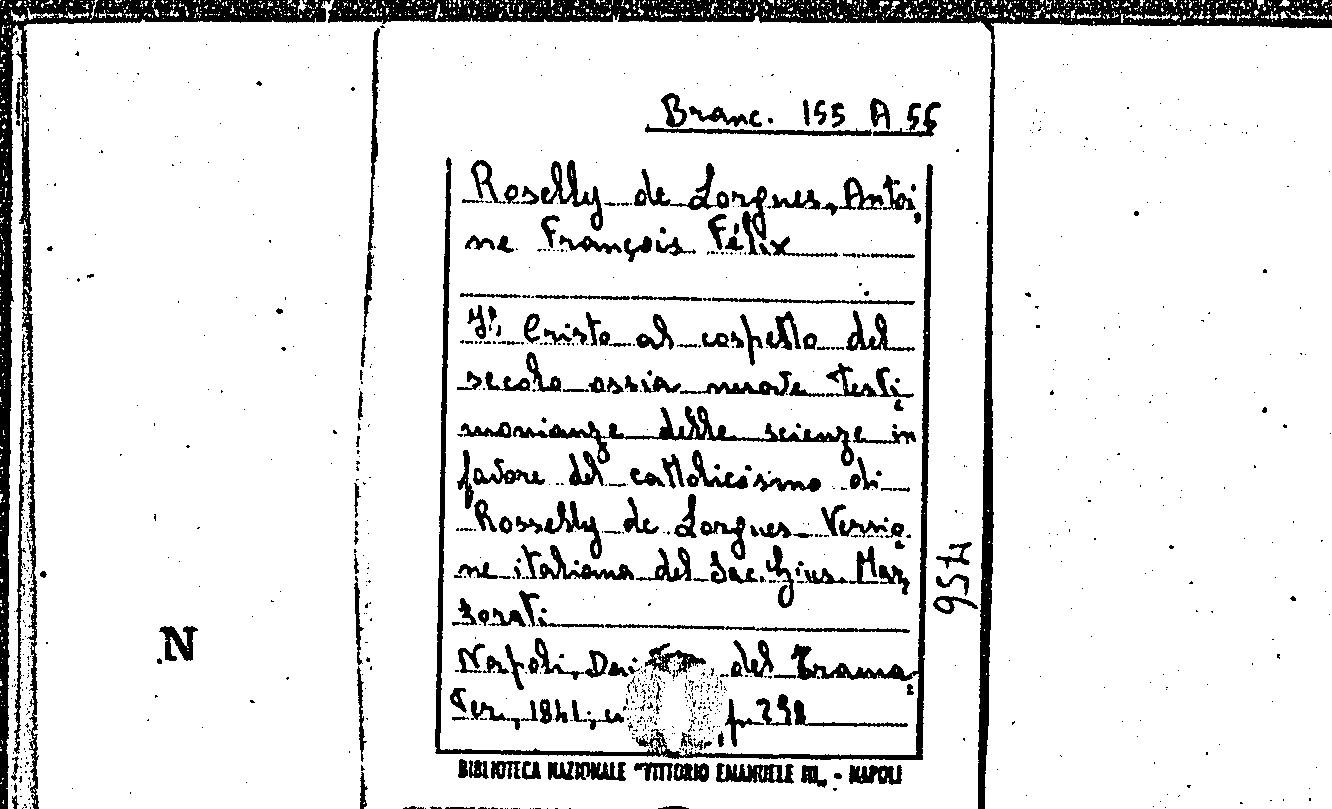 Branc. 155 A 56
Roselly de Lorgues, Antoi,
ne François Félix
Cristo al cospetto del
secolo ossia nuove testi,
monianze delle scienze in
favore del cattolicisimo di
Rosselly de Lorgues. Versio,
ne italiana del Sac. Gius. Mar,
zorati
Napoli, Dai del Trama,
Ter, 1841; p. 298
456
N
BIBLIOTECA NAZIONALE "VITTORIO EMANUELE III„ - NAPOLI